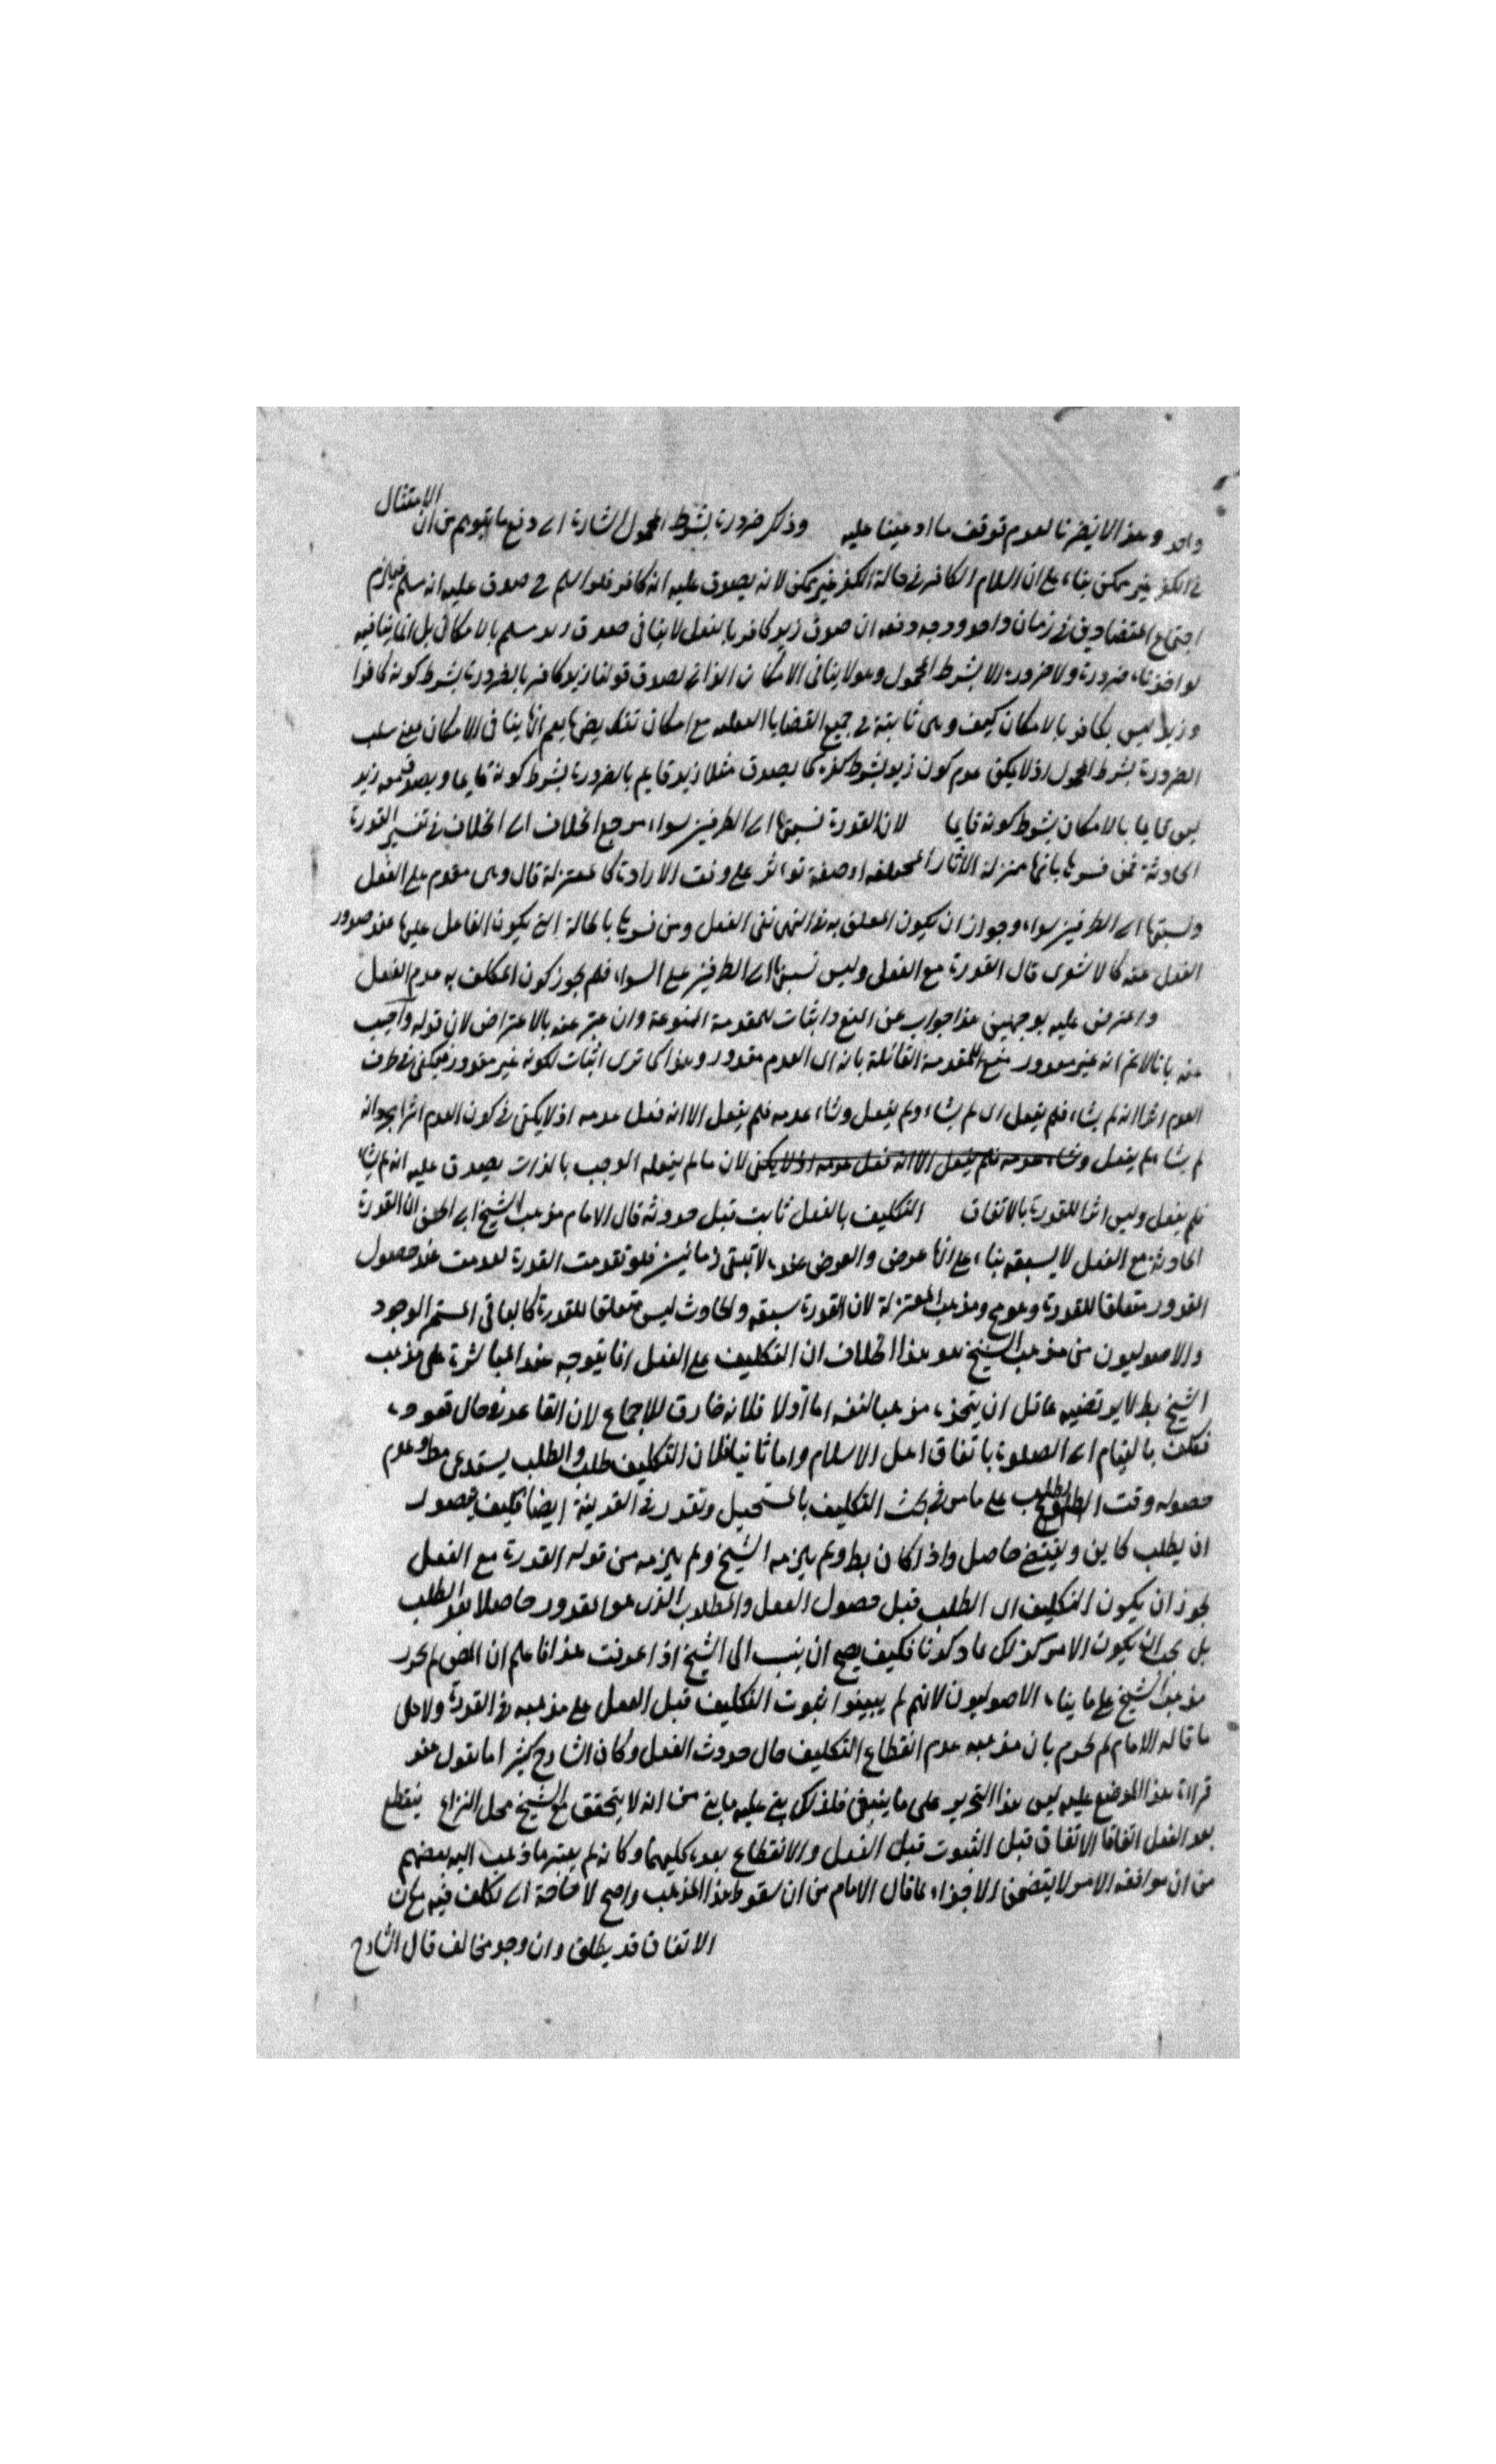 واحد وهذا لا يضرنا لعدم توقف ما ادعينا عليه وذكر ضرورة بشرط المحمول اشارة الى دفع ما يتوهم من ان الامتثال
في الكفر غير ممكن بناء على ان اسلام الكافر في حالة الكفر غير ممكن لانه يصدق عليه انه كافر فلو اسلم ح صدق عليه انه مسلم فيلزم
اجتماع المتضادين في زمان واحد ووجه دفعه ان صدق زيد كافر بالفعل لا ينافى صدق زيد مسلم بالامكان بل انما ينافيه
لو اخذناه ضرورة ولا ضرورة الا بشرط المحمول وهو لا ينافى الامكان الذاتي لصدق قولنا زيد كافر بالضرورة بشرط كونه كافرا
وزيد ليس بكافر بالامكان كيف وهى ثابتة في جميع القضايا الفعلية مع امكان نعم انها ينافى الامكان بمعنى سلب
الضرورة بشرط المحمول اذ لا يمكن عدم كون زيد بشرط كفره كما يصدق مثلا زيد قايم بالضرورة بشرط كونه قايما ويصدق زيد
ليس قايما بالامكان بشرط كونه قايما لان القدرة نسبتها الى الطرفين سواء مرجع الخلاف الى الخلاف في تفسير القدرة
الحادثة فمن فسرها بانها بمنزلة الآثار المختلفة او صفة تؤثر على وفق الارادة كالمعتزلة قال وهى مقدم على الفعل
ونسبتها الى الطرفين سواء وجواز ان يكون المعلق به في النهى نفى الفعل ومن فسرها بالحالة التي يكون الفاعل عليها عند صدور
الفعل عنه كالاشعرى قال القدرة مع الفعل وليس نسبتها الى الطرفين على السواء فلم يجوز كون المكلف به عدم الفعل
واعترض عليه بوجهين هذا جواب عن المنع واثبات للمقدمة الممنوعة وان عبر عنه بالاعتراض لان قوله واجيب
عنه بانا لا نم انه غير مقدور منع للمقدمة القائلة بانه اى العدم مقدور وهذا كما ترى اثبات لكونه غير مقدور فيكفى في طرف
العدم اثرا انه لم يشاء فلم يفعل اى لم يشاء ولم يفعل وشاء عدمه فلم يفعل الا انه فعل عدمه اذ لا يكفى في كون العدم اثرا مجرد انه
لم يشا فلم يفعل وشاء عدمه فلم يفعل الا انه فعل عدمه اذ لا يكفى لان ما لم يفعله الموجب بالذات يصدق عليه انه لم يشا
فلم يفعل وليس اثرا للقدرة بالاتفاق التكليف بالفعل ثابت قبل حدوثه قال الامام مذهب الشيخ ابي الحسن ان القدرة
الحادثة مع الفعل لا يسبقه بناء على انها عرض والعرض عنده لا تبقى زمانين فلو تقدمت القدرة لعدمت عند حصول
المقدور متعلقا للقدرة وهو مح ومذهب المعتزلة لان القدرة سبقه والحادث ليس متعلقا للقدرة كالباقى المستمر الوجود
والاصوليون من مذهب الشيخ هو هذا الخلاف ان التكليف على الفعل انما يتوجه عند المباشرة على مذهب
الشيخ بط لا يرتضيه عاقل ان يتخذه مذهبا لنفسه اما اولا فلانه خارق للاجماع لان القاعد في حال قعوده
مكلف بالقيام الى الصلوة باتفاق اهل الاسلام واما ثانيا فلان التكليف طلب والطلب يستدعى مطلوبا وعدم
حصوله وقت الطلب على ما مر في بحث التكليف بالمستحيل وتقدر في القدرة ايضا فكيف يتصور
ان يطلب كاين ويقتضى حاصل واذا كان بط ولم يلزمه الشيخ ولم يلزمه من قوله القدرة مع الفعل
لجواز ان يكون التكليف اى الطلب قبل حصول الفعل والمطلوب الذى هو المقدور حاصلا بعد الطلب
بل يجب ان يكون الامر كذلك كما ذكرنا فكيف يصح ان ينسب الى الشيخ اذا عرفت هذا فاعلم ان المص لم يحرر
مذهب الشيخ على ما بناه الاصوليون لانهم لم يبينوا ثبوت التكليف قبل الفعل على مذهبه في القدرة ولا على
ما قاله الامام لم يجزم بان مذهبه عدم انقطاع التكليف حال حدوث الفعل وكان الشارح كثيرا ما يقول عند
قراءة هذا الموضع عليه ليس هذا التحرير على ما ينبغى فلذلك بنى عليه ما بنى من انه لا يتحقق مع الشيخ محل النزاع ينقطع
بعد الفعل اتفاقا الاتفاق قبل الثبوت قبل الفعل والانقطاع بعده كليهما وكانه لم يعتبر ما ذهب اليه بعضهم
من ان موافقة الامر لا يتضمن الاجزاء لما قال الامام من ان سقوط هذا المذهب واضح لا حاجة الى تكلف فيه على ان
الاتفاق قد يطلق وان وجد مخالف قال الشارح